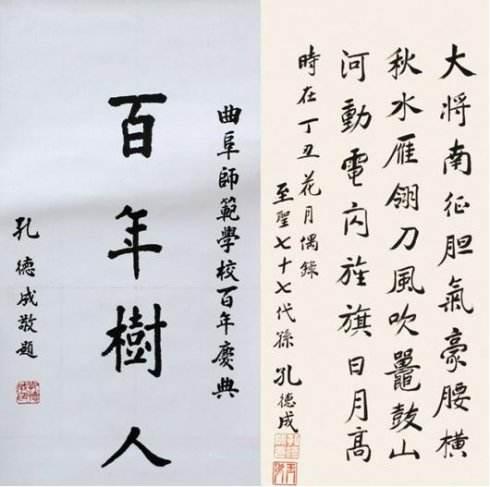 大将南征胆氣豪腰橫
秋水雁翎刀風吹鼉鼓山
河動電闪旌旗日月高
時在丁丑花月偶錄
至聖七十七代孫 孔德成
曲阜師範學校百年慶典
百年樹人
孔德成敬題